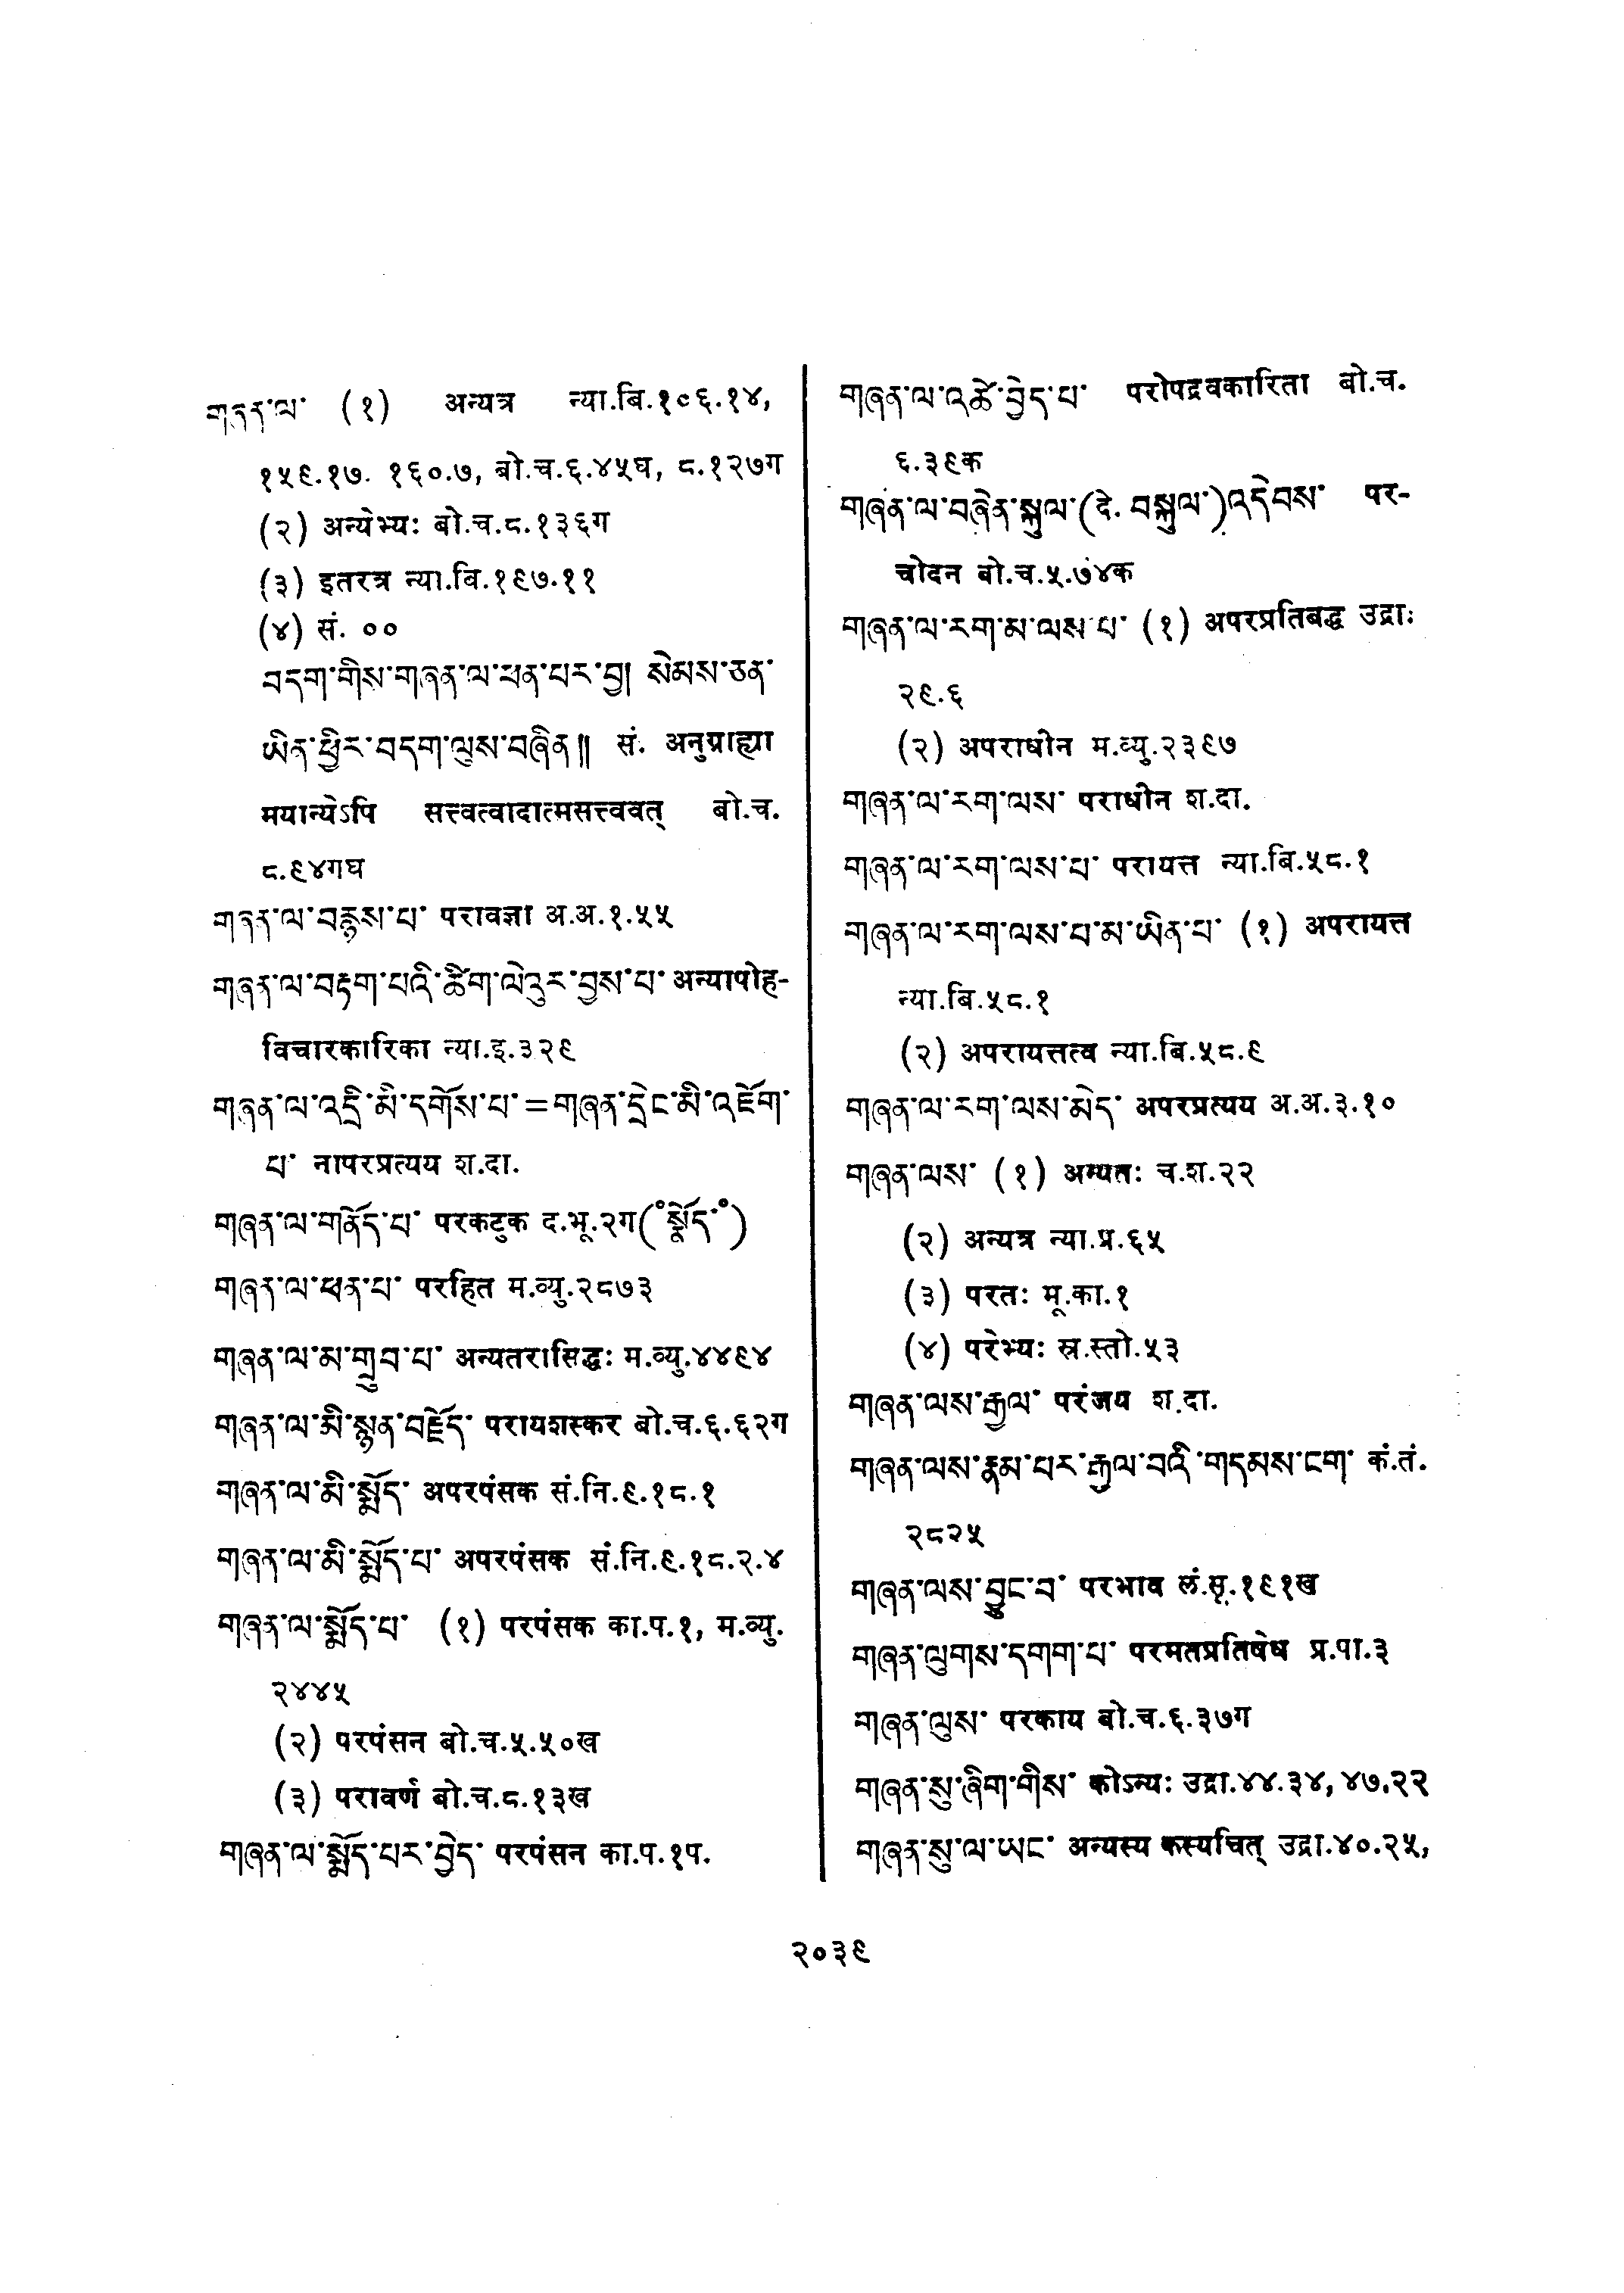 གཞན་ལ་ (१) अन्यत्र न्या.बि.१०६.१४,
१५९.१७. १६०.७, बो.च.६.४५घ, ८.१२७ग
(२) अन्येभ्यः बो.च.८.१३६ग
(३) इतरत्र न्या.बि.१९७.११
(४) सं. ००
བདག་གིས་གཞན་ལ་ཕན་པར་བྱ། སེམས་ཅན་
ཡིན་ཕྱིར་བདག་ལུས་བཞིན༎ सं. अनुग्राह्या
मयान्येऽपि सत्त्वत्वादात्मसत्त्ववत् बो.च.
८.९४गघ
གཞན་ལ་བརྙས་པ་ परावज्ञा अ.अ.१.५५
གཞན་ལ་བརྟག་པའི་ཚིག་ལེའུར་བྱས་པ་ अन्यापोह-
विचारकारिका न्या.इ.३२९
གཞན་ལ་འདྲི་མི་དགོས་པ་=གཞན་དྲིང་མི་འཇོག་
པ་ नापरप्रत्यय श.दा.
གཞན་ལ་གནོད་པ་ परकटुक द.भू.२ग(°སྣོད་°)
གཞན་ལ་ཕན་པ་ परहित म.व्यु.२८७३
གཞན་ལ་མ་གྲུབ་པ་ अन्यतरासिद्धः म.व्यु.४४९४
གཞན་ལ་མི་སྙན་བརྗོད་ परायशस्कर बो.च.६.६२ग
གཞན་ལ་མི་སྨོད་ अपरपंसक सं.नि.९.१८.१
གཞན་ལ་མི་སྨོད་པ་ अपरपंसक सं.नि.९.१८.२.४
གཞན་ལ་སྨོད་པ་ (१) परपंसक का.प.१, म.व्यु.
२४४५
(२) परपंसन बो.च.५.५०ख
(३) परावर्ण बो.च.८.१३ख
གཞན་ལ་སྨོད་པར་བྱེད་ परपंसन का.प.१प.
གཞན་ལ་འཚེ་བྱེད་པ་ परोपद्रवकारिता बो.च.
६.३९क
གཞན་ལ་བཞེན་སྐུལ་(दे. བསྐུལ་)འདེབས་ पर-
चोदन बो.च.५.७४क
གཞན་ལ་རག་མ་ལས་པ་ (१) अपरप्रतिबद्ध उद्राः
२९.६
(२) अपराधीन म.व्यु.२३९७
གཞན་ལ་རག་ལས་ पराधीन श.दा.
གཞན་ལ་རག་ལས་པ་ परायत्त न्या.बि.५८.१
གཞན་ལ་རག་ལས་པ་མ་ཡིན་པ་ (१) अपरायत्त
न्या.बि.५८.१
(२) अपरायत्तत्व न्या.बि.५८.९
གཞན་ལ་རག་ལས་མེད་ अपरप्रत्यय अ.अ.३.१०
གཞན་ལས་ (१) अम्यतः च.श.२२
(२) अन्यत्र न्या.प्र.६५
(३) परतः मू.का.१
(४) परेभ्यः स्र.स्तो.५३
གཞན་ལས་རྒྱལ་ परंजय श.दा.
གཞན་ལས་རྣམ་པར་རྒྱལ་བའི་གདམས་ངག་ कं.तं.
२८२५
གཞན་ལས་བྱུང་བ་ परभाव लं.सृ.१९१ख
གཞན་ལུགས་དགག་པ་ परमतप्रतिषेध प्र.पा.३
གཞན་ལུས་ परकाय बो.च.६.३७ग
གཞན་སུ་ཞིག་གིས་ कोऽन्यः उद्रा.४४.३४, ४७.२२
གཞན་སུ་ལ་ཡང་ अन्यस्य कस्यचित् उद्रा.४०.२५,
२०३९